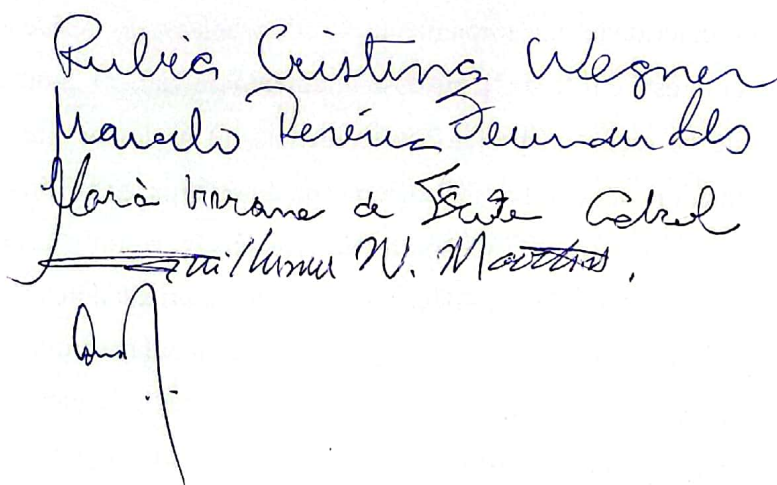 Rubia Cristina Wegner
Marcelo Pereira Fernandes
Maria Viviane de Cabral
Guilherme N. Martins.